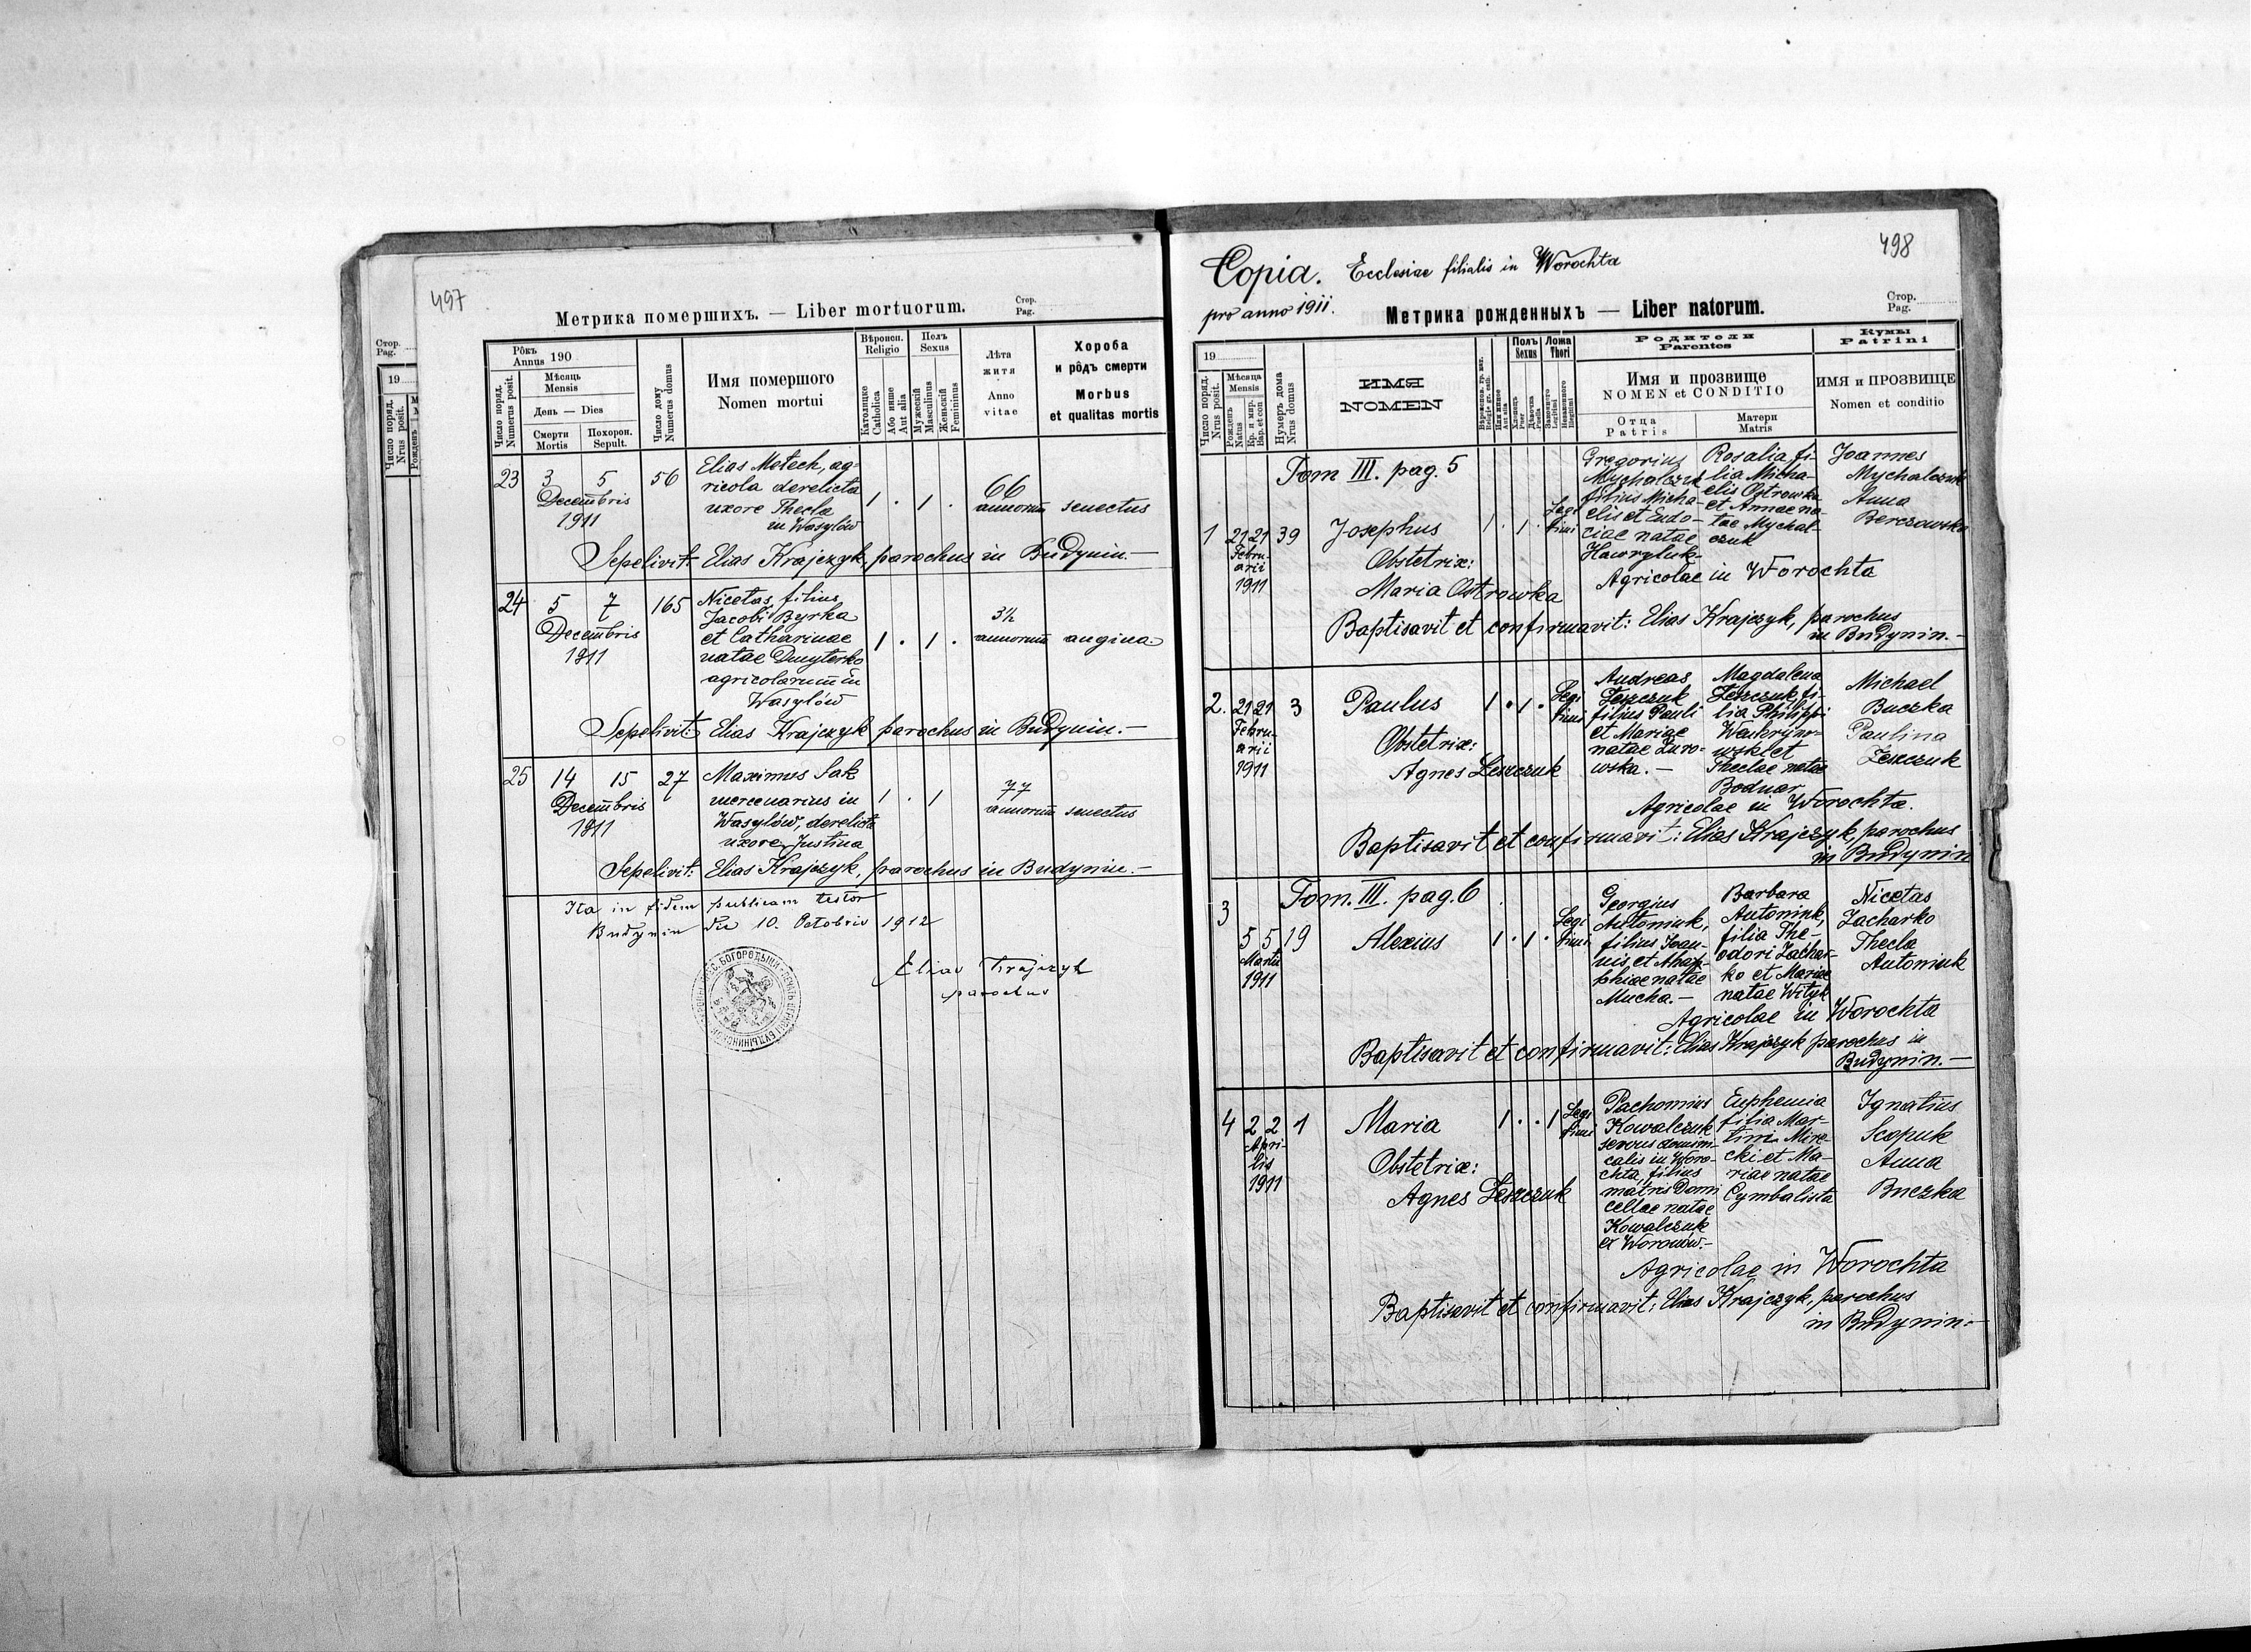 497
Метрика померших. — Liber mortuorum.
Стор.
Pag.
Рôкъ
Annus 190
Мѣсяць
Mensis
День — Dies
Число поряд.
Numerus posit.
Смерти
Mortis
Похорон.
Sepult.
Число дому
Numerus domus
Имя помершого
Nomen mortui
Вѣроисп.
Religio
Католицке
Catholica
Або инше
Aut alia
Полъ
Sexus
Мужескій
Masculinus
Женьскій
Femininus
Лѣта
житя
Anno
vitae
Хороба
и рôдъ смерти
Morbus
et qualitas mortis
23 3 5 56 Elias Metech, ag-
ricola derelicta
uxore Thecla
in Wasylów
Decembris
1911
1 . 1 . 66
annorum senectus
Sepelivit: Elias Krajczyk, parochus in Budynin.—
24 5 7 165 Nicetas, filius
Jacobi Byrka
et Catharinae
natae Dmyterko
agricolarum in
Wasylów
Decembris
1911
1 . 1 . 3½
annorum angina.
Sepelivit: Elias Krajczyk parochus in Budynin.—
25 14 15 27 Maximus Sak
mercenarius in
Wasylów, derelicta
uxore Justina
Decembris
1911
1 . 1 77
annorum senectus
Sepelivit: Elias Krajczyk, parochus in Budynin.—
Ita in fidem publicam testor
Budynin die 10. Octobris 1912
Elias Krajczyk
parochus
498
Copia. Ecclesiae filialis in Worochta
pro anno 1911.
Метрика рожденныхъ — Liber natorum.
Стор.
Pag.
19
Число поряд.
Nrus posit.
Мѣсяца
Mensis
Рожденъ
Natus
Кр. и мир.
Bap. et con
Нумеръ дома
Nrus domus
ИМЯ
NOMEN
Полъ
Sexus
Ложа
Thori
Родители
Parentes
Имя и прозвище
NOMEN et CONDITIO
Отца
Patris
Матери
Matris
Кумы
Patrini
ИМЯ и ПРОЗВИЩЕ
Nomen et conditio
Tom III. pag. 5
1 21 21 39 Josephus
Febru-
arii
1911
Obstetrix:
Maria Ostrowka
1 . 1 . Legi
timi
Gregorius
Mychalczuk
filius Micha-
elis et Eudo-
ciae natae
Hawryluk
Rosalia fi-
lia Micha-
elis Ostrowka
et Annae na-
tae Mychal-
czuk
Joannes
Mychalczuk
Anna
Berezowska
Agricolae in Worochta
Baptisavit et confirmavit: Elias Krajczyk, parochus
in Budynin.—
2. 21 21 3 Paulus
Febru-
arii
1911
Obstetrix:
Agnes Leszczuk
1 . 1 . Legi
timi
Andreas
Leszczuk
filius Pauli
et Mariae
natae Zuro-
wska.—
Magdalena
Leszczuk fi-
lia Philippi
wski et
Theclae natae
Bodnar
Michael
Buczka
Paulina
Leszczuk
Agricolae in Worochta.
Baptisavit et confirmavit: Elias Krajczyk, parochus
in Budynin
3 Tom. III. pag. 6
5 5 19 Alexius
Martii
1911
1 . 1 . Legi
timi
Georgius
Antoniuk,
filius Joan-
nis et Agap-
phiae natae
Mucha.—
Barbara
Antoniuk,
filia The-
odori Zachar-
ko et Mariae
natae Wityk
Nicetas
Zacharko
Thecla
Antoniuk
Agricolae in Worochta
Baptisavit et confirmavit: Elias Krajczyk parochus in
Budynin.—
4 2 2 1 Maria
Apri-
lis
1911
Obstetrix:
Agnes Leszczuk
1 . . 1 Legi
timi
Pachomius
Kowalczuk
servus domini-
calis in Woro-
chta, filius
matris Domi
cellae natae
Kowalczuk
ex Woronów.—
Euphemia
filia Mar-
tini Mire-
cki et Ma-
riae natae
Cymbalista
Ignatius
Scopuk
Anna
Buczka
Agricolae in Worochta
Baptisavit et confirmavit: Elias Krajczyk, parochus
in Budynin.—